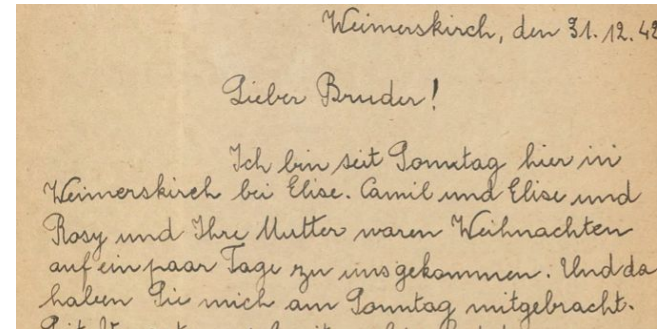 Weimerskirch, den 31.12.42
Lieber Bruder!
Ich bin seit Sonntag hier in
Weimerskirch bei Elise. Camil und Elise und
Rosy und Ihre Mutter waren Weihnachten
auf ein paar Tage zu uns gekommen. Und da
haben Sie mich am Sonntag mitgebracht.